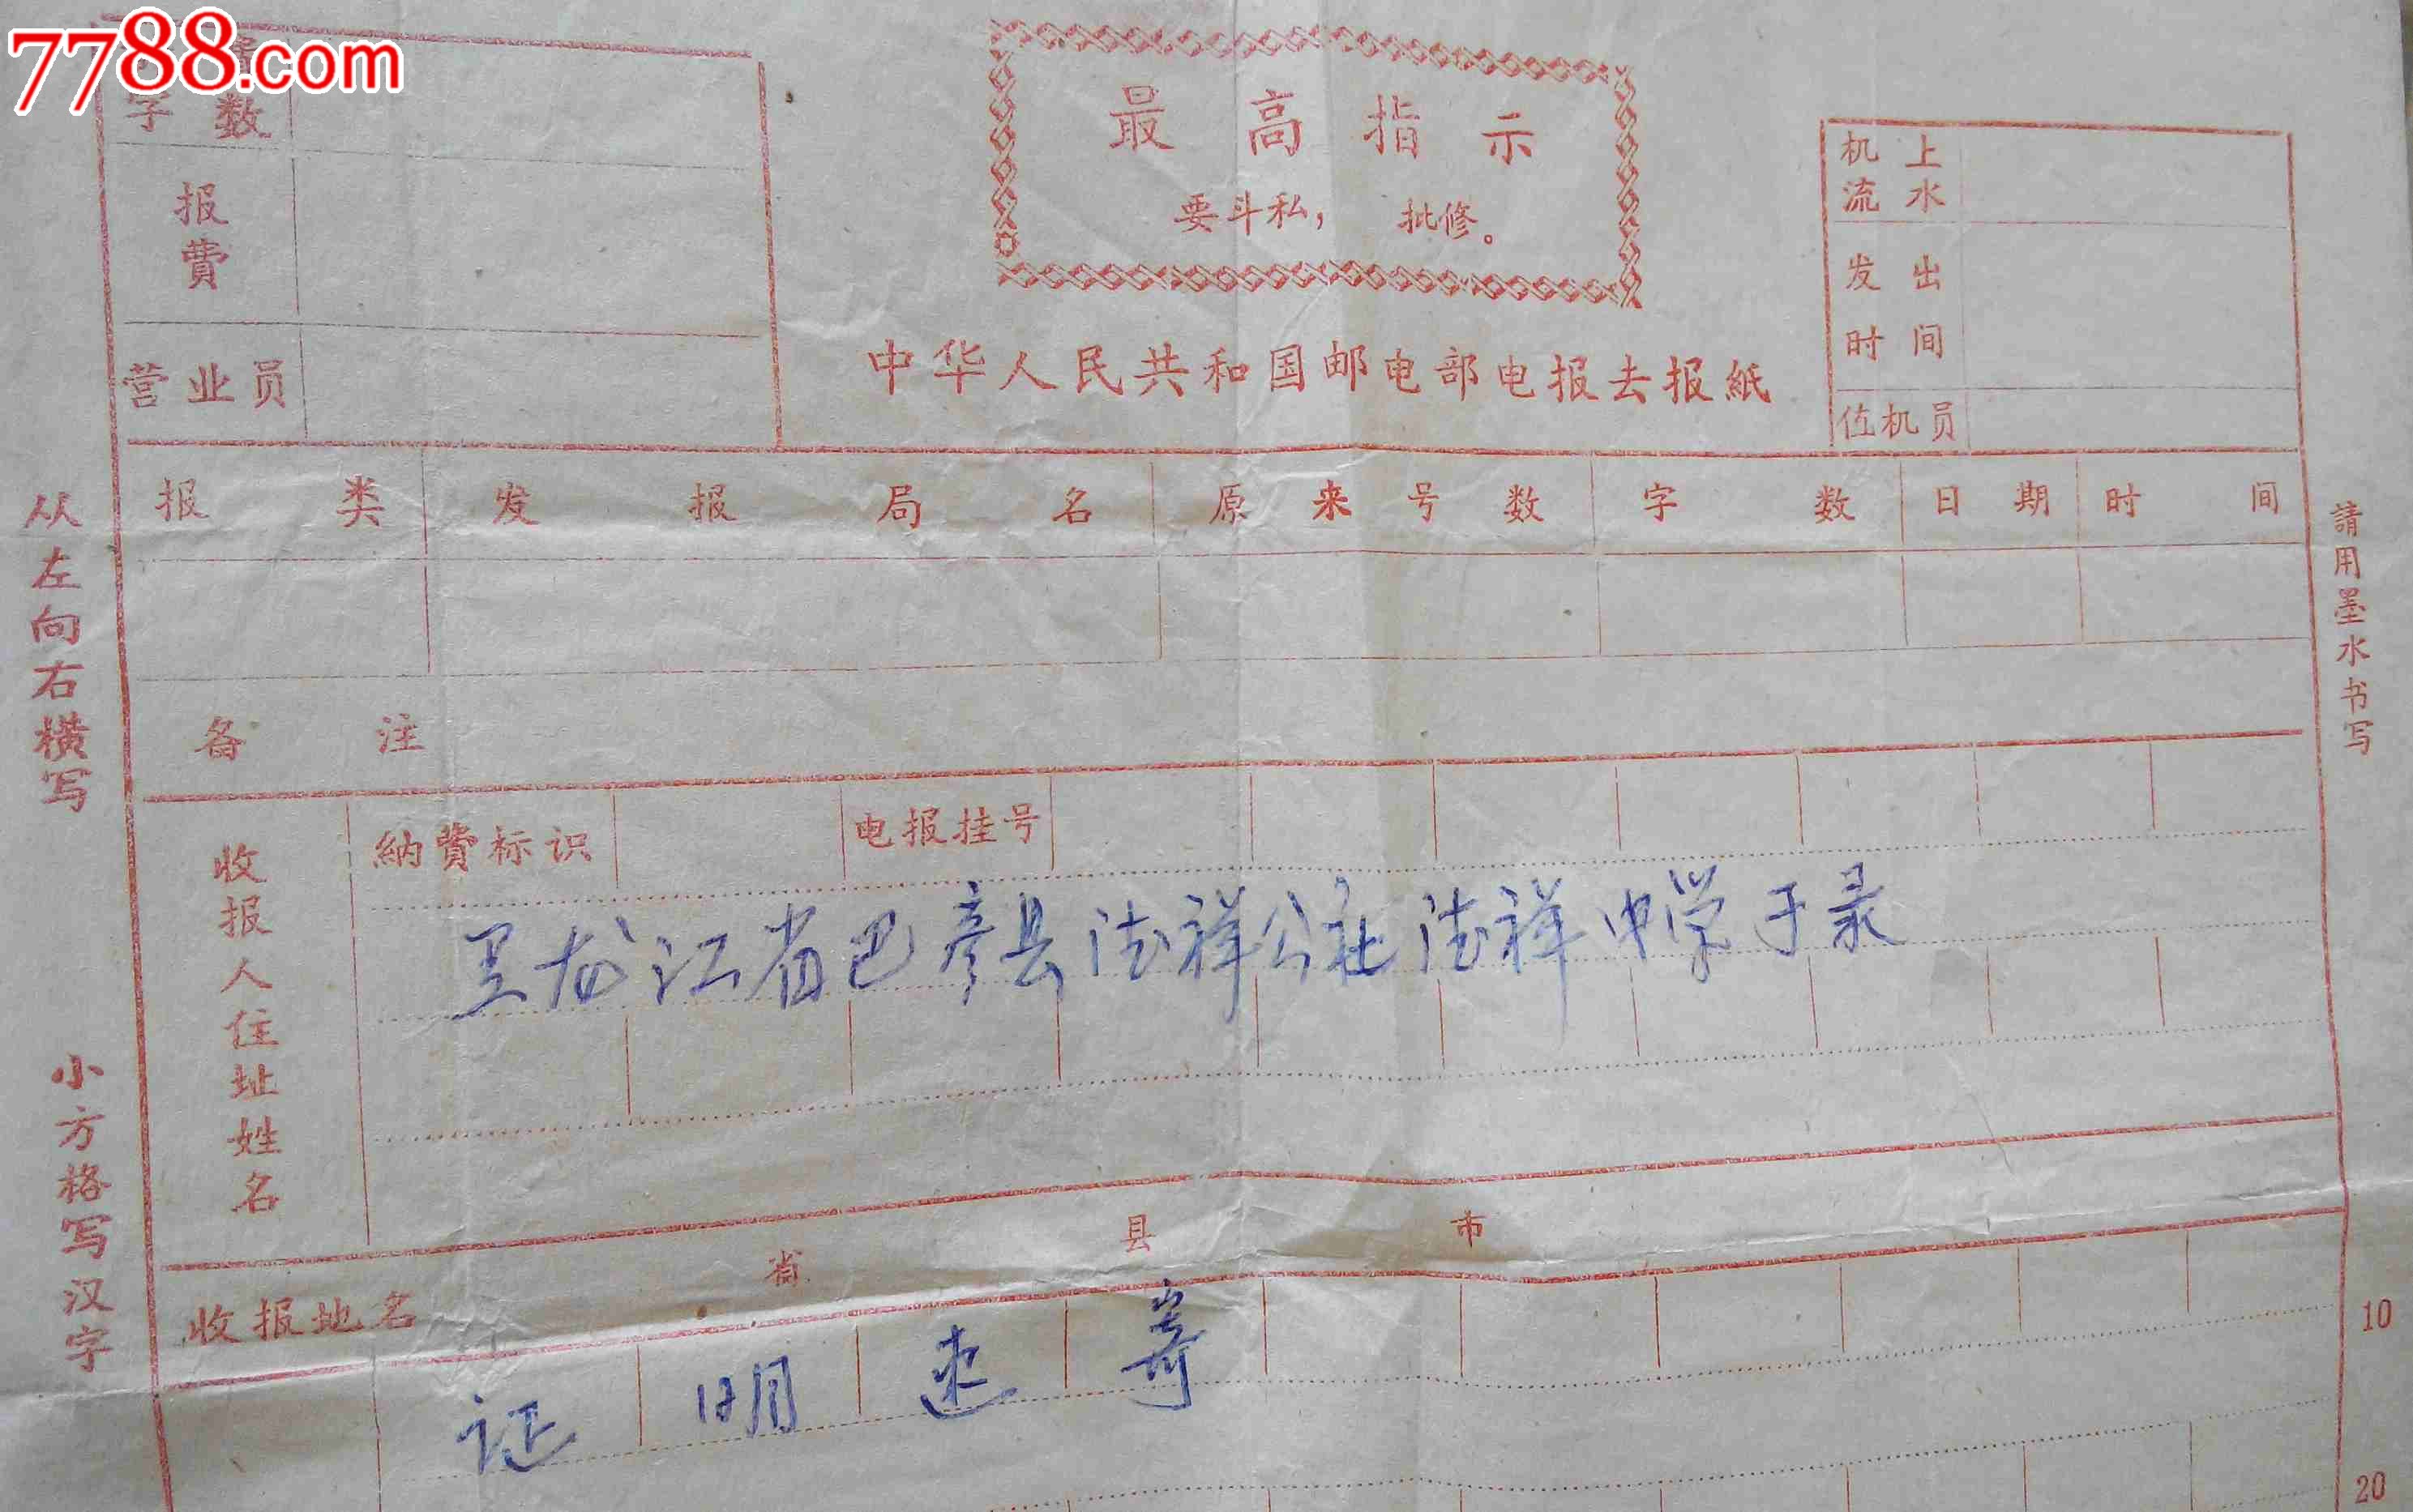 7788.com
字数
报費
营业员
最高指示
要斗私， 批修。
中华人民共和国邮电部电报去报紙
机上流水
发出时间
值机员
报类 发报局名 原来号数 字数 日期 时间
备注
纳費标识 电报挂号
收报人住址姓名
黑龙江省巴彦县德祥公社德祥中学于录
省 县 市
收报地名
证明速寄
10
20
从左向右横写
小方格写汉字
請用墨水书写